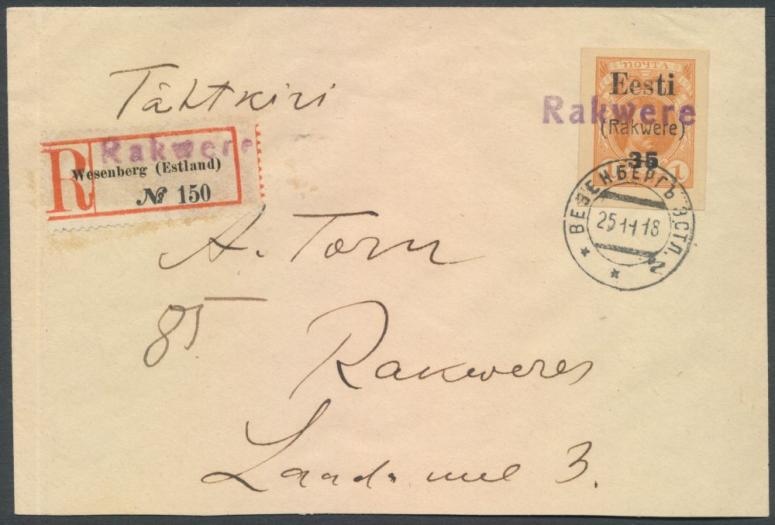 ПОЧТА
Eesti
Rakwere
(Rakwere)
35
1 1
ВЕЗЕНБЕРГЪ ЭСТЛ. 2
25 11 18
Tähtkiri
R
Rakwere
Wesenberg (Estland)
№ 150
A. Torn
85
Rakweres
3.